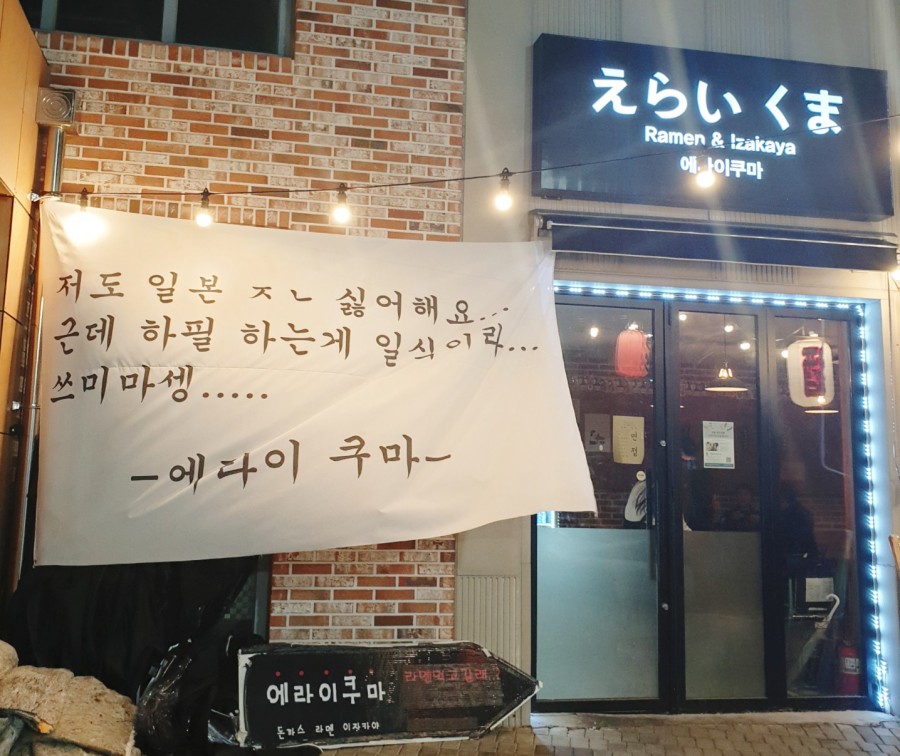 えらい くま
Ramen & Izakaya
에라이쿠마
저도 일본 ㅈㄴ 싫어해요...
근데 하필 하는게 일식이라...
쓰미마셍.....
-에라이 쿠마-
연필
에라이쿠마
라멘먹고갈래?
돈카스 라멘 이자카야